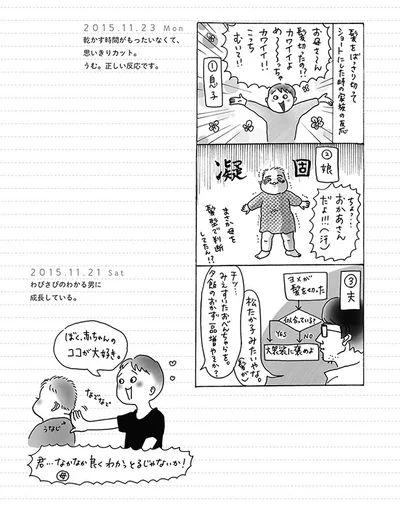 2015.11.23 Mon
乾かす時間がもったいなくて、
思いきりカット。
うむ。正しい反応です。
髪をばっさり切って
ショートにした時の家族の反応
①息子
お母さ〜ん
髪切ったの!?
カワイイよ
め〜〜っちゃ
カワイイ!!
こっち
むいて!!
②娘
凝固
ちょっ…
おかあさん
だよ!!!(汗)
まさか母を
髪型で判断
してたん!?
③夫
ヨメが
髪を切った
似合っている?
YES
NO
大袈裟に褒めよ
松たか子みたいやな。
(髪が)
チッ…
みえすいたおべんちゃらを。
夕飯のおかず一品増やすか?
2015.11.21 Sat
わびさびのわかる男に
成長している。
ぼく、赤ちゃんの
ココが大好き。
なでなで
うなじ
君…なかなか良くわかっとるじゃないか!
母